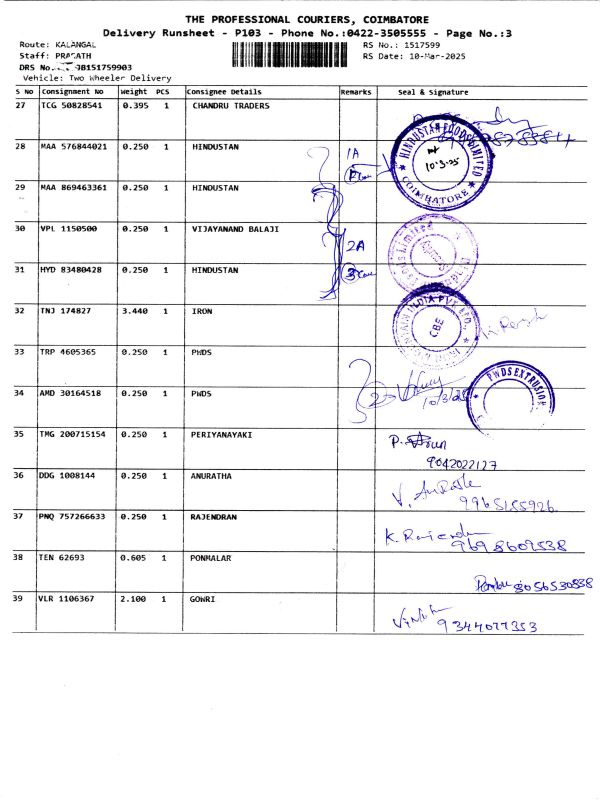 THE PROFESSIONAL COURIERS, COIMBATORE
Delivery Runsheet - P103 - Phone No.:0422-3505555 - Page No.:3
Route: KALANGAL RS No.: 1517599
Staff: PRASATH RS Date: 10-Mar-2025
DRS No.
Vehicle: Two Wheeler Delivery
S No Consignment No Weight PCS Consignee Details Remarks Seal & Signature
27 TCG 50828541 0.395 1 CHANDRU TRADERS
28 MAA 576844021 0.250 1 HINDUSTAN 1A
HINDUSTAN FOODS LIMITED
10.3.25
COIMBATORE
29 MAA 869463361 0.250 1 HINDUSTAN
30 VPL 1150500 0.250 1 VIJAYANAND BALAJI 2A
31 HYD 83480428 0.250 1 HINDUSTAN
32 TNJ 174827 3.440 1 IRON
INDIA PVT LTD.,
CBE
33 TRP 4605365 0.250 1 PWDS
34 AMD 30164518 0.250 1 PWDS 2 10/3/25
PWDS EXTRUSION
35 TMG 200715154 0.250 1 PERIYANAYAKI
9042022127
36 DDG 1008144 0.250 1 ANURATHA
9965155926
37 PNQ 757266633 0.250 1 RAJENDRAN
9698602538
38 TEN 62693 0.605 1 PONMALAR
8056530838
39 VLR 1106367 2.100 1 GOWRI
9344077353